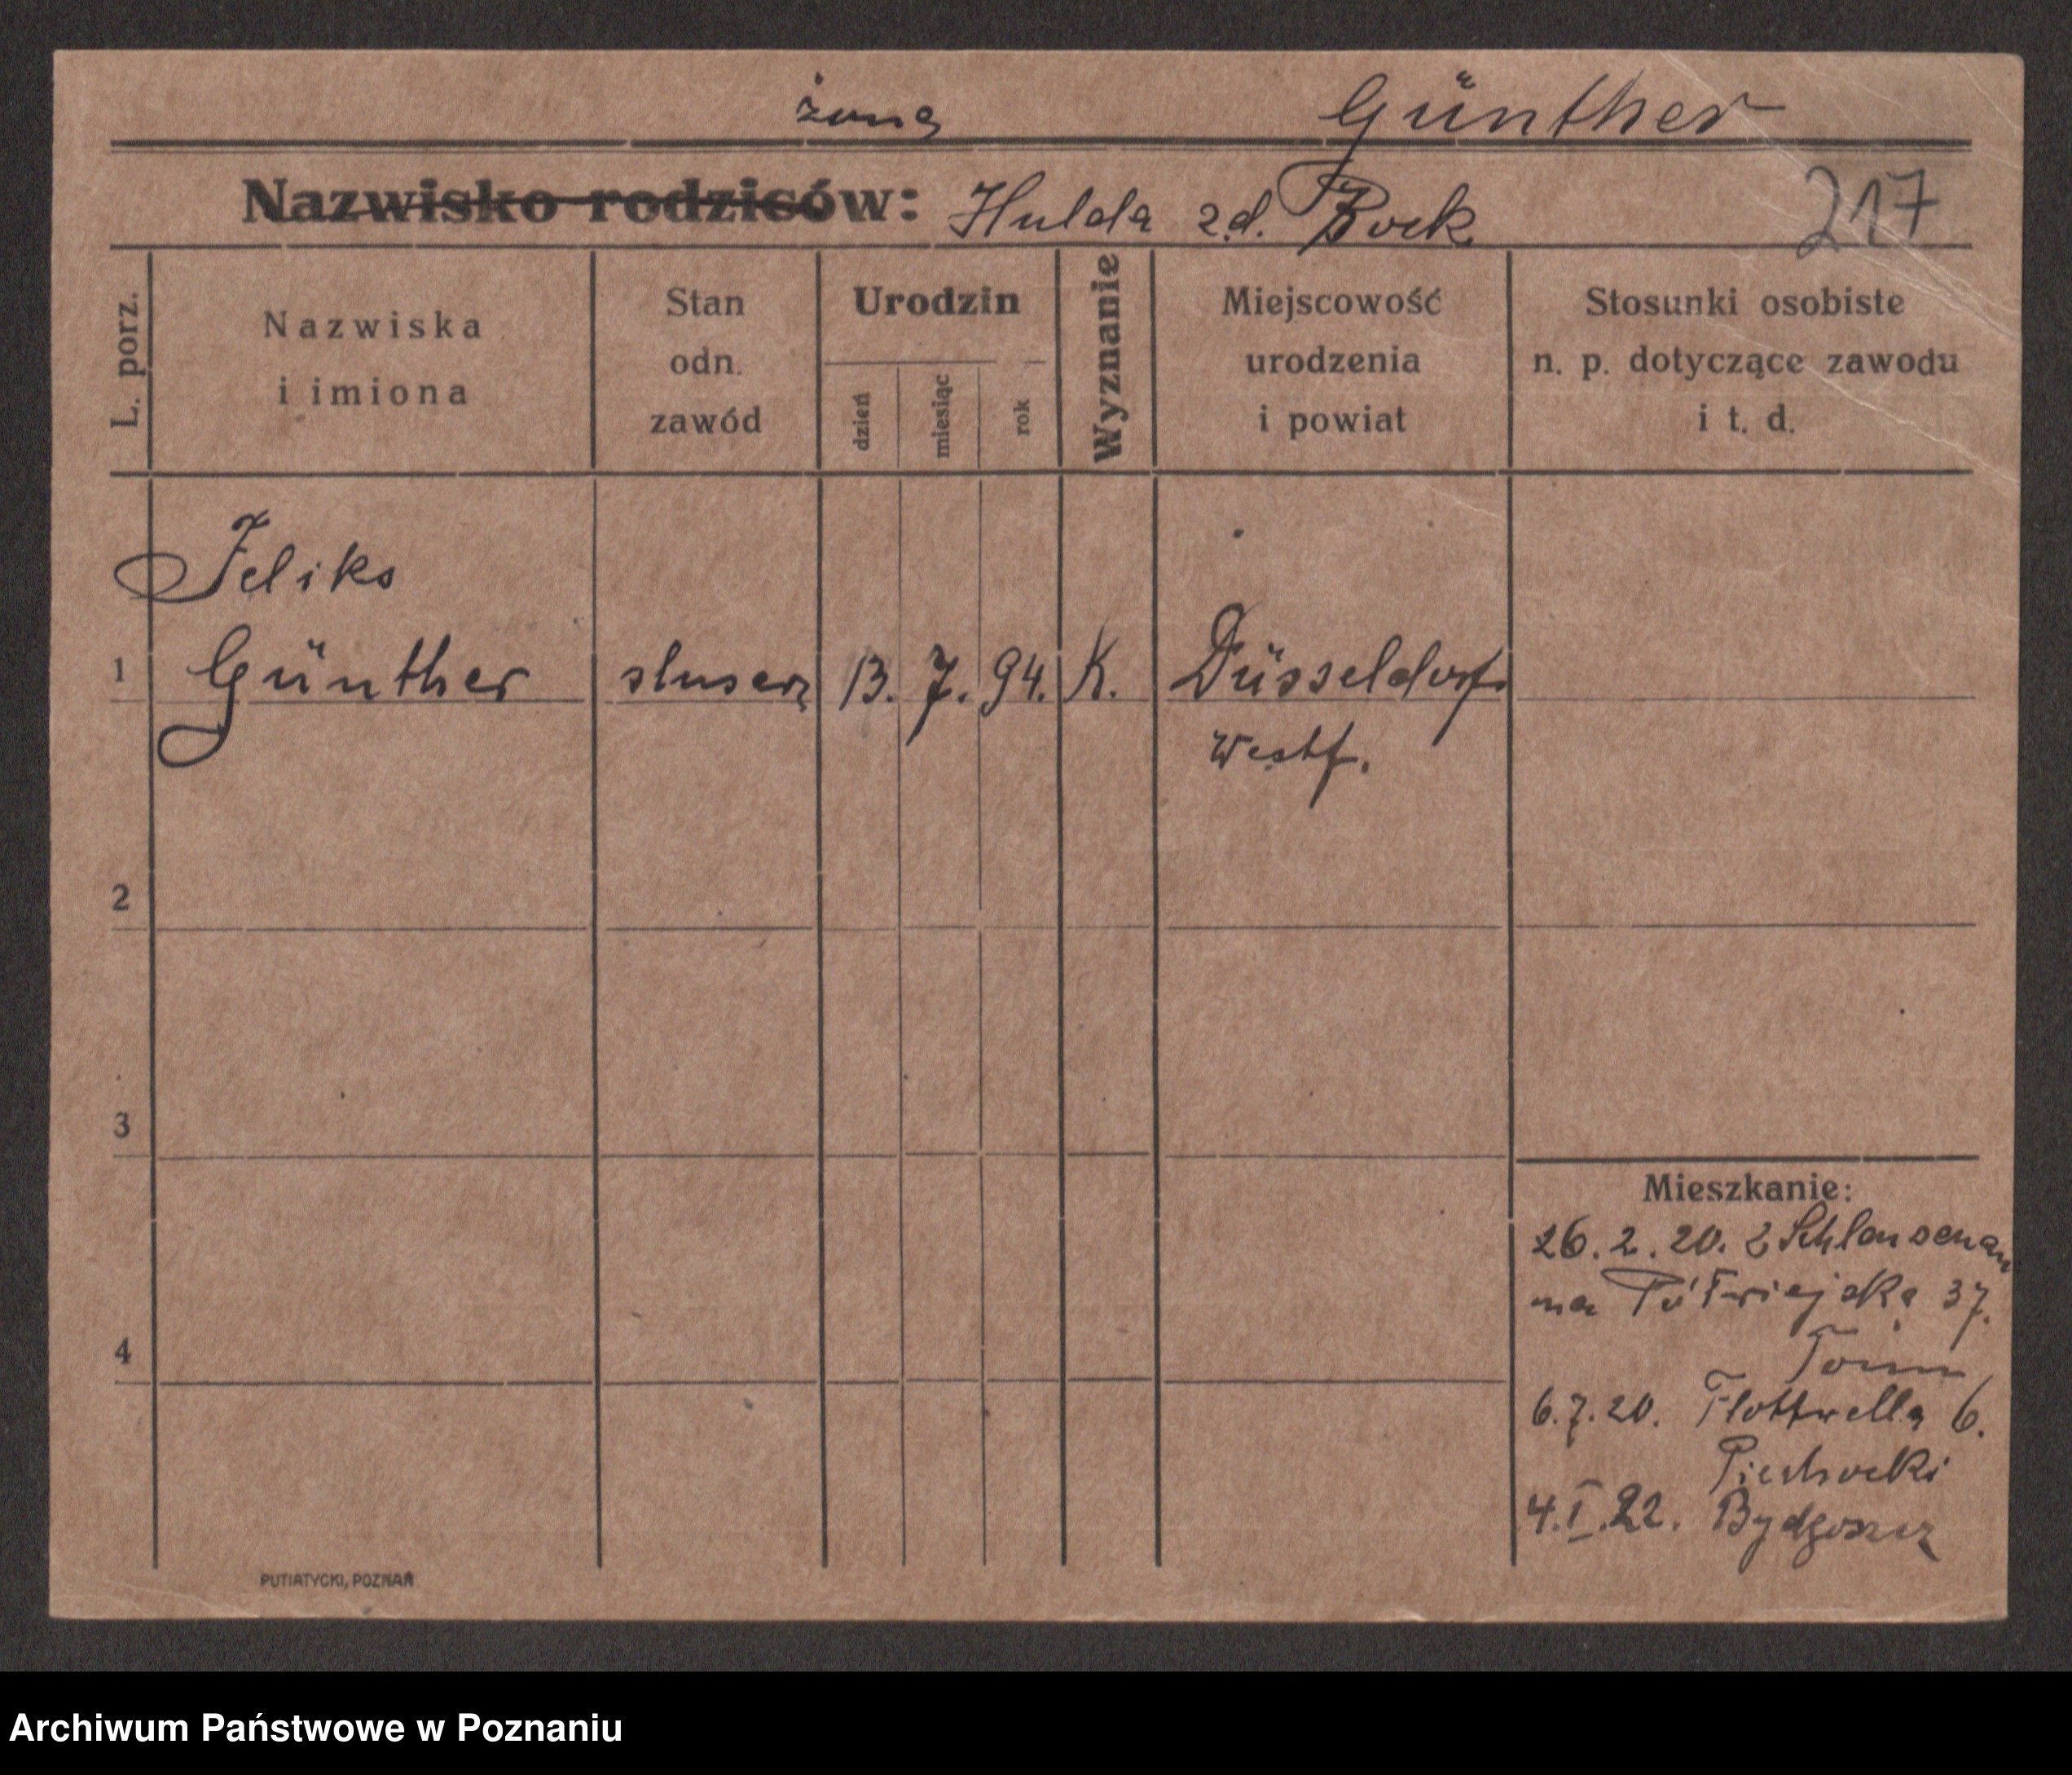 żona Günther
Nazwisko rodziców: Hulda z.d. Bock 217
L. porz.
Nazwiska
i imiona
Stan
odn.
zawód
Urodzin
dzień
miesiąc
rok
Wyznanie
Miejscowość
urodzenia
i powiat
Stosunki osobiste
n. p. dotyczące zawodu
i t. d.
Feliks
1 Günther slusarz 13. 7. 94. K. Düsseldorf
Westf.
2
3
4
Mieszkanie:
26. 2. 20. z Schleusenau
na Półwiejską 37.
6. 7. 20. Flottwella 6.
Piechocki
4. I. 22. Bydgoszcz
PUTIATYCKI, POZNAŃ
Archiwum Państwowe w Poznaniu